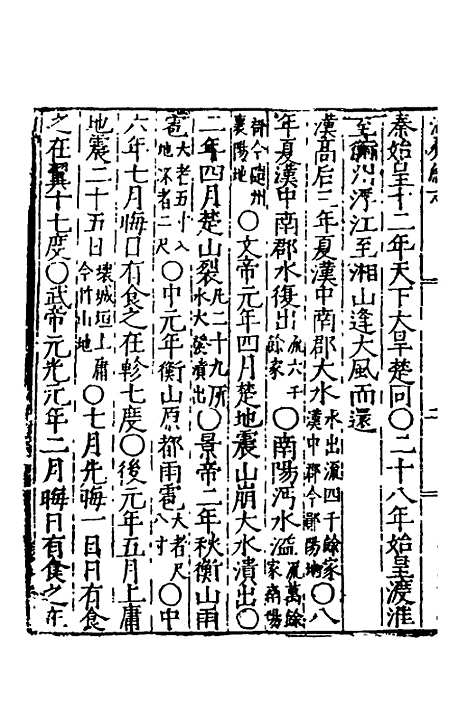 秦始皇十二年天下大旱楚同〇二十八年始皇渡淮
至衡州浮江至湘山逢大風而還
漢高后三年夏漢中南郡大水水出流四千餘家漢中郡今鄖陽地〇八
年夏漢中南郡水復出流六千餘家〇南陽沔水溢流萬餘家南陽
郡今隨州襄陽地〇文帝元年四月楚地震山崩大水潰出〇
二年四月楚山裂凡二十九所水大發潰出〇景帝二年秋衡山雨
雹大者五寸深者二尺〇中元年衡山原都雨雹大者尺八寸〇中
六年七月晦日有食之在軫七度〇後元年五月上庸
地震二十五日壞城垣上庸今竹山地〇七月先晦一日日有食
之在翼十七度〇武帝元光元年二月晦日有食之在